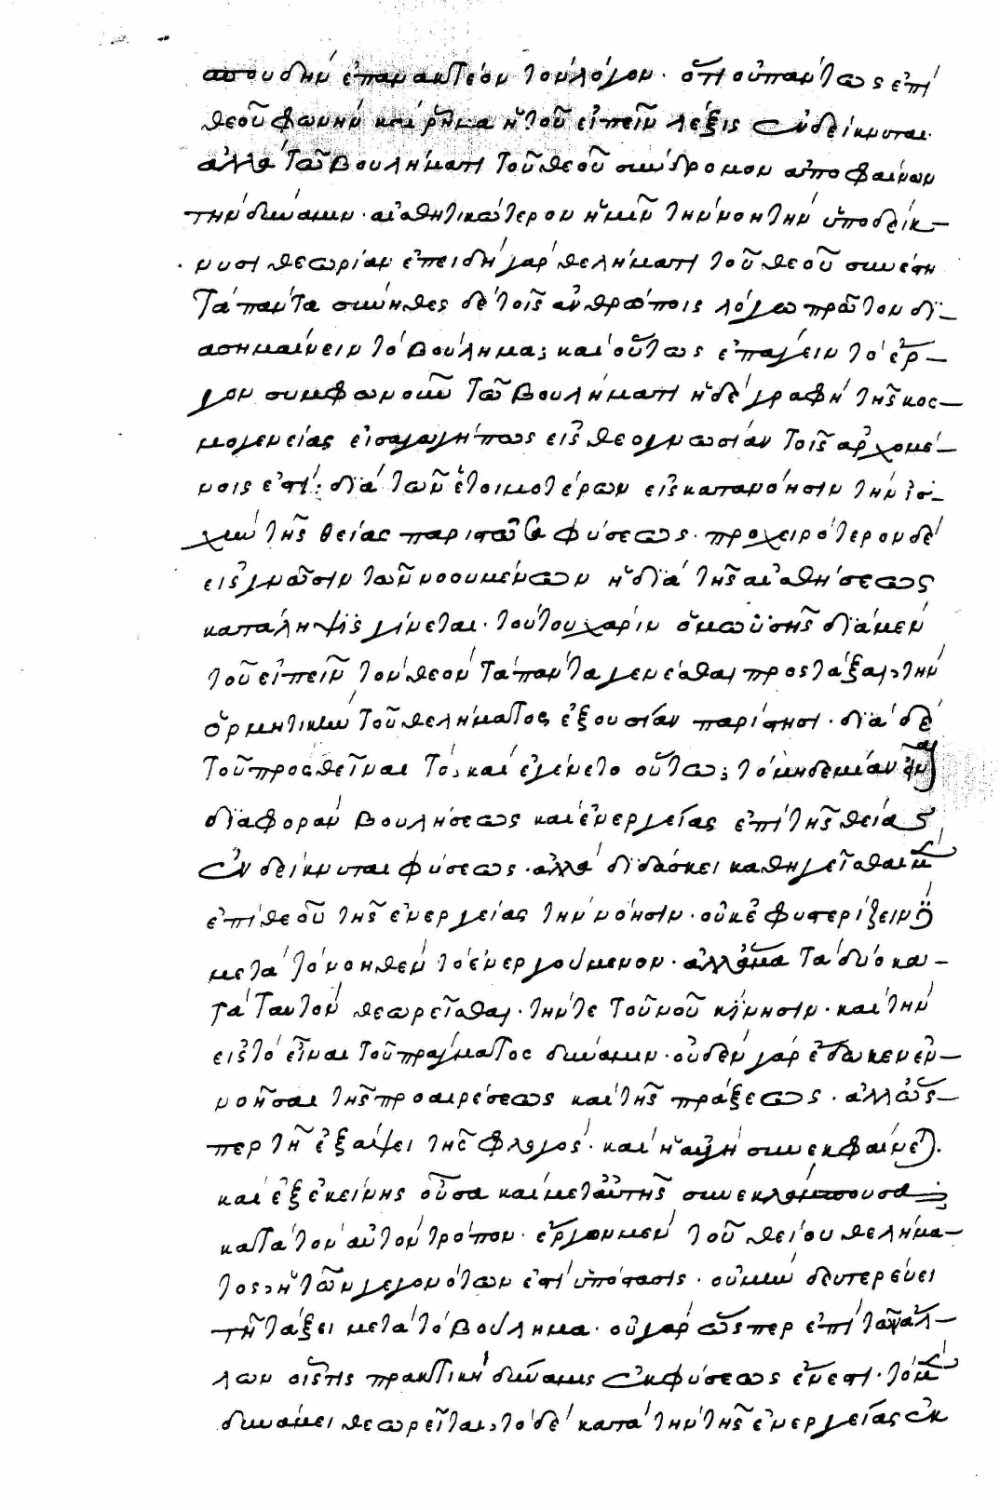 σπουδὴν ἐπανακτέον τὸν λόγον· ὅτι οὐ πάντως ἐπὶ
θεοῦ φωνὴν καὶ ῥῆμα ἡ τοῦ εἰπεῖν λέξις ἐνδείκνυται·
ἀλλὰ τῶ βουλήματι τοῦ θεοῦ σύνδρομον ἀποφαίνων
τὴν δύναμιν· αἰσθητικώτερον ἡμῖν τὴν νοητὴν ὑποδείκ-
νυσι θεωρίαν ἐπειδὴ γὰρ θελήματι τοῦ θεοῦ συνέστη
τὰ πάντα σύνηθες δὲ τοῖς ἀνθρώποις λόγω πρῶτον δι-
ασημαίνειν τὸ βούλημα; καὶ οὕτως ἐπάγειν τὸ ἔρ-
γον συμφωνοῦν τῶ βουλήματι ἡ δὲ γραφὴ τῆς κοσ-
μογενείας εἰσαγωγή πως εἰς θεογνωσίαν τοῖς ἀρχομέ-
νοις ἐστί: διὰ τῶν ἑτοιμοτέρων εἰς κατανόησιν τὴν ἰσ-
χὺν τῆς θείας παριστῶσα φύσεως· προχειρότερον δὲ
εἰς γνῶσιν τῶν νοουμένων ἡ διὰ τῆς αἰσθήσεως
κατάληψις γίνεται· τούτου χάριν ὁ μωϋσῆς διὰ μὲν
τοῦ εἰπεῖν τὸν θεὸν τὰ πάντα γενέσθαι προστάξαι, τὴν
ὁρμητικὴν τοῦ θελήματος ἐξουσίαν παρίστησι· διὰ δὲ
τοῦ προσθεῖναι τό, καὶ ἐγένετο οὕτως; τὸ μηδεμίαν εἶναι
διαφορὰν βουλήσεως καὶ ἐνεργείας ἐπὶ τῆς θείας
ἐνδείκνυται φύσεως· ἀλλὰ διδάσκει καθηγεῖσθαι μὲν
ἐπὶ θεοῦ τῆς ἐνεργείας τὴν νόησιν· οὐκ ἐφυστερίζειν δὲ
μετὰ τὸ νοηθὲν τὸ ἐνεργούμενον· ἀλλ' ἅμα τὰ δύο κα-
τὰ ταυτὸν θεωρεῖσθαι· τήν τε τοῦ νοῦ κίνησιν· καὶ τὴν
εἰς τὸ εἶναι τοῦ πράγματος δύναμιν· οὐδὲν γὰρ ἔδωκεν ἐν-
νοῆσαι τῆς προαιρέσεως καὶ τῆς πράξεως· ἀλλ' ὥσ-
περ τῆ ἐξάψει τῆς φλογὸς· καὶ ἡ αὐγὴ συνεκφαίνεται·
καὶ ἐξ ἐκείνης οὖσα καὶ μετ' αὐτῆς συνεκλάμπουσα;
κατὰ τὸν αὐτὸν τρόπον· ἔργον μὲν τοῦ θείου θελήμα-
τος, ἡ τῶν γεγονότων ἐστὶ ὑπόστασις· οὐ μὴν δευτερεύει
τῆ τάξει μετὰ τὸ βούλημα· οὐ γὰρ ὥσπερ ἐπὶ τῶν ἄλ-
λων οἷς τις πρακτικὴ δύναμις ἐκ φύσεως ἔνεστι· τὸ μὲν
δυνάμει θεωρεῖται, τὸ δὲ κατὰ τὴν τῆς ἐνεργείας ἐκ